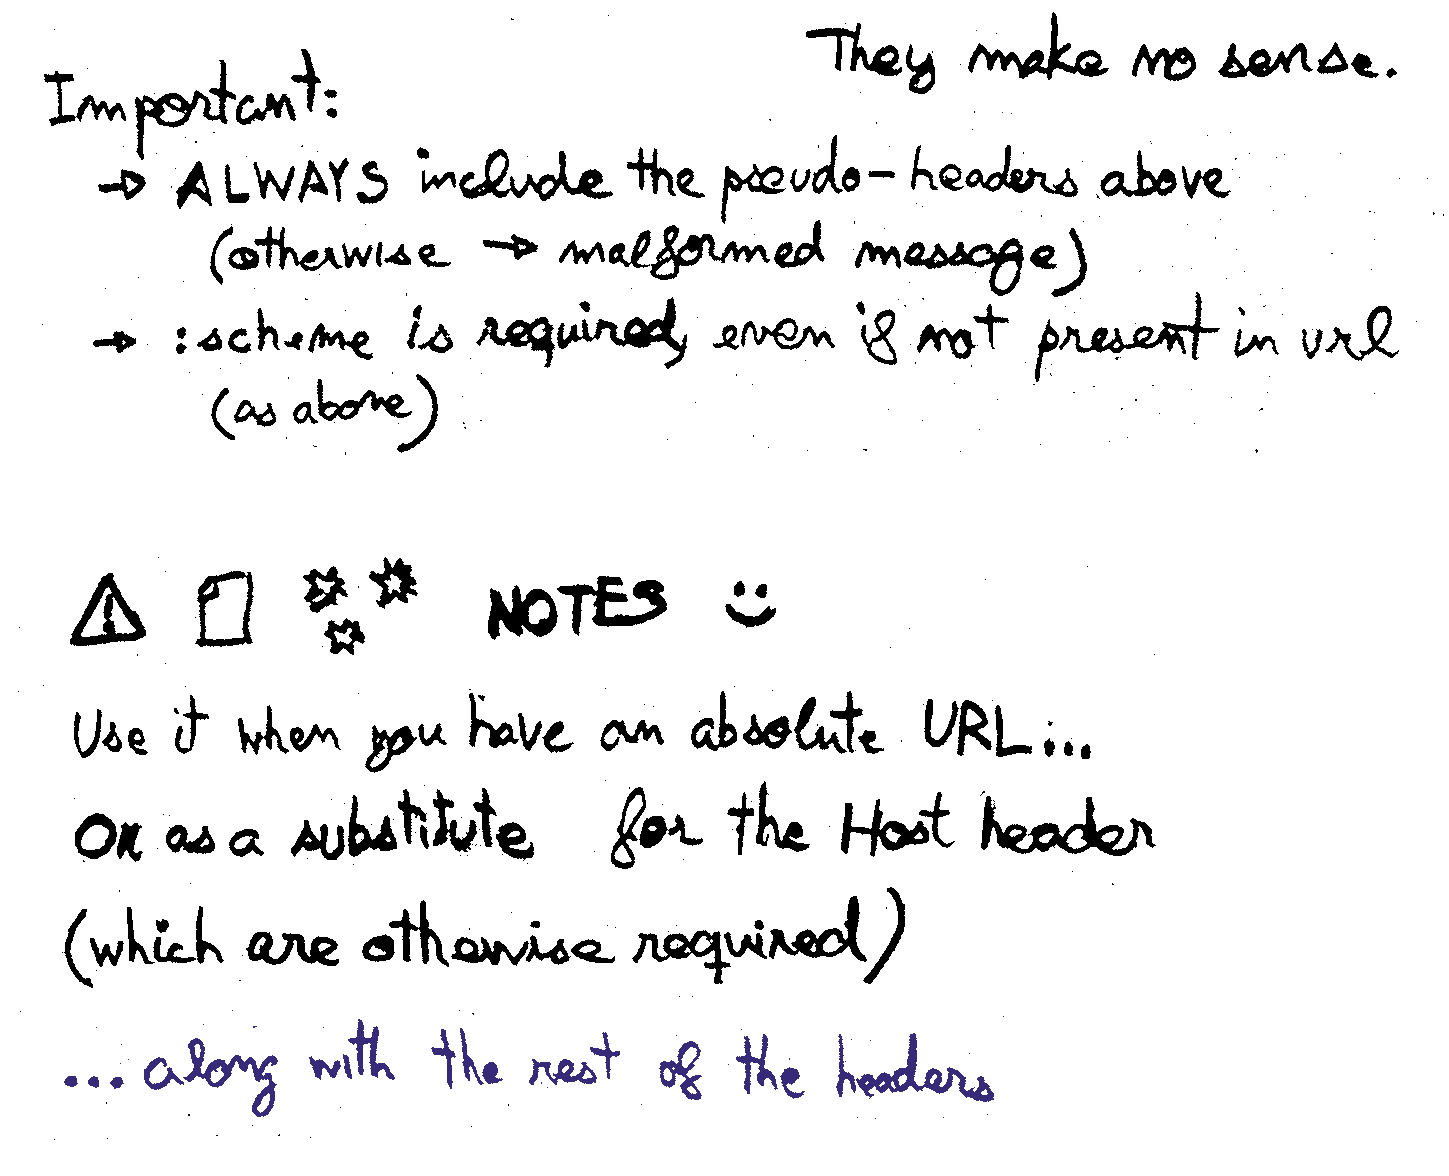 They make no sense.
Important:
→ ALWAYS include the pseudo-headers above
(otherwise → malformed message)
→ :scheme is required, even if not present in url
(as above)
NOTES
Use it when you have an absolute URL...
OR as a substitute for the Host header
(which are otherwise required)
...along with the rest of the headers